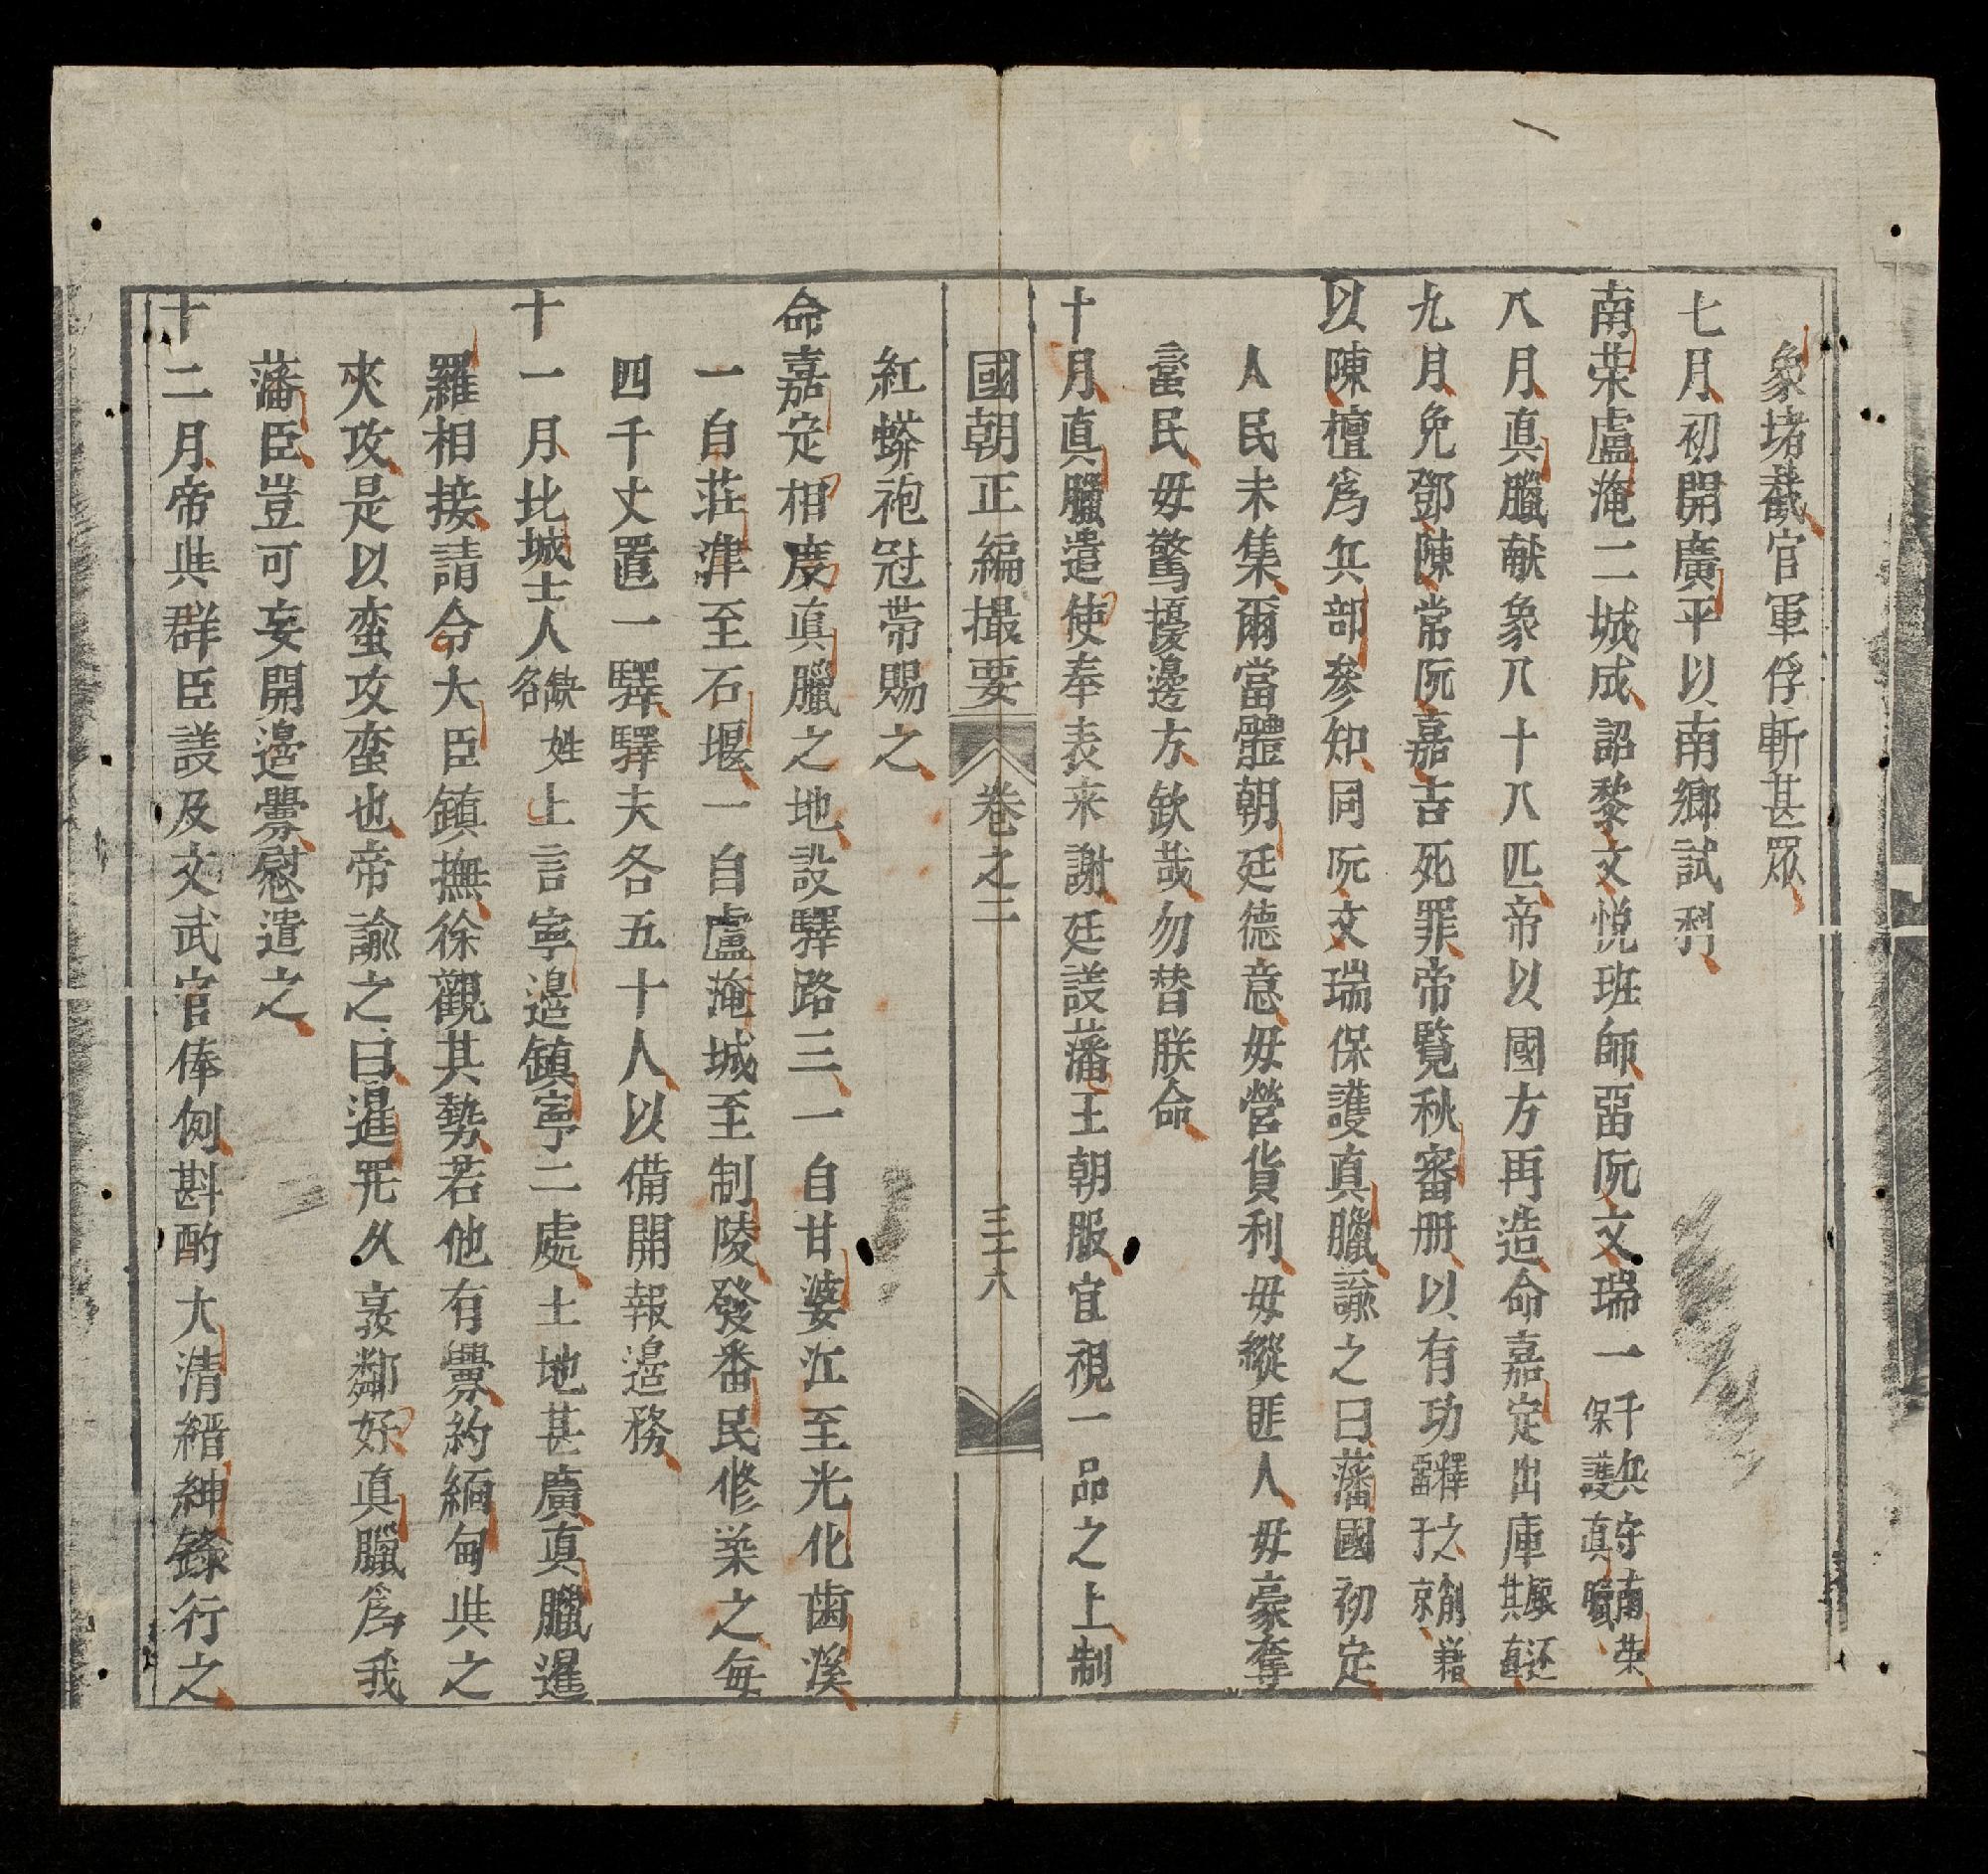 象堵截官軍俘斬甚眾
七月初開廣平以南鄉試科
南荣盧淹二城成詔黎文悅班師畱阮文瑞一千兵守南荣保護真臘
八月真臘献象八十八匹帝以國方再造命嘉定出庫還其直
九月免鄧陳常阮嘉吉死罪帝覧秋審册以有功釋之削籍畱于京
以陳檀為兵部參知同阮文瑞保護真臘諭之曰藩國初定
人民未集爾當體朝廷德意毋營貨利毋縱匪人毋豪奪
蛮民毋驚擾邊方欽哉勿替朕命
十月真臘遣使奉表来謝廷議藩王朝服宜視一品之上制
國朝正編撮要 卷之二 三十六
紅蟒袍冠帯賜之
命嘉定相度真臘之地設驛路三一自甘婆江至光化歯溪
一自荘津至石堰一自盧淹城至制陵發番民修築之每
四千丈置一驛驛夫各五十人以備開報邊務
十一月北城士人缺姓名上言寧邉鎮寧二處土地甚廣真臘暹
羅相接請令大臣鎮撫徐觀其勢若他有釁約緬甸與之
夾攻是以蛮攻蛮也帝諭之曰暹羅久敦鄰好真臘為我
藩臣豈可妄開邉釁慰遣之
十二月帝與群臣議及文武官俸例斟酌大清縉紳錄行之